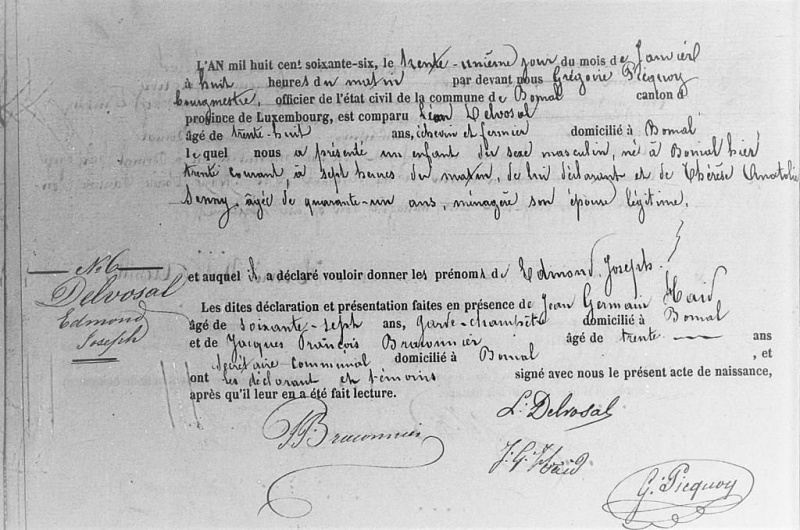 L'AN mil huit cent soixante-six, le trente-unième jour du mois de Janvier
à huit heures du matin par devant nous Grégoire Picquoy
bourgmestre, officier de l'état civil de la commune de Bomal canton d
province de Luxembourg, est comparu Léon Delvosal
âgé de trente-huit ans, échevin et fermier domicilié à Bomal
lequel nous a présenté un enfant du sexe masculin, né à Bomal hier
trente courant, à sept heures du matin, de lui déclarant et de Thérèse Anatolie
Senny, âgée de quarante-un ans, ménagère son épouse légitime,
No 6
Delvosal
Edmond
Joseph
et auquel il a déclaré vouloir donner les prénoms de Edmond Joseph.
Les dites déclaration et présentation faites en présence de Jean Germain Haid
âgé de soixante-sept ans, garde-champêtre domicilié à Bomal
et de Jacques François Braconnier âgé de trente ans
secrétaire communal domicilié à Bomal , et
ont les déclarant et témoins signé avec nous le présent acte de naissance,
après qu'il leur en a été fait lecture.
L. Delvosal
J. F. Braconnier
J. G. Haid
G. Picquoy